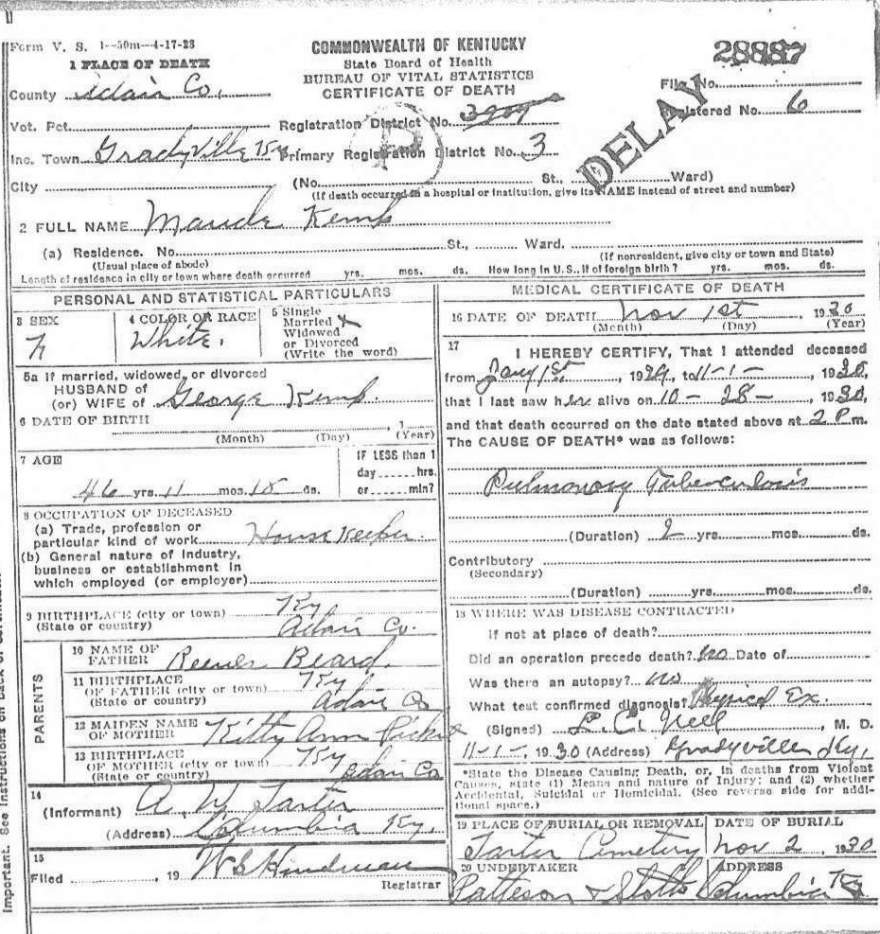 Form V. S. 1-50m-4-17-23
COMMONWEALTH OF KENTUCKY
State Board of Health
BUREAU OF VITAL STATISTICS
CERTIFICATE OF DEATH
28887
File No.
DELAY
1 PLACE OF DEATH
County Adair Co.
Registered No. 6
Vot. Pct. Registration District No.
Inc. Town Gradyville Ky Primary Registration District No. 3
City (No. St., Ward)
(If death occurred in a hospital or institution, give its NAME instead of street and number)
2 FULL NAME Maude Kemp
(a) Residence. No. St., Ward.
(Usual place of abode) (If nonresident, give city or town and State)
Length of residence in city or town where death occurred yrs. mos. ds. How long in U.S., if of foreign birth? yrs. mos. ds.
PERSONAL AND STATISTICAL PARTICULARS
3 SEX
F
4 COLOR OR RACE
White.
5 Single
Married X
Widowed
or Divorced
(Write the word)
5a If married, widowed, or divorced
HUSBAND of
(or) WIFE of George Kemp.
6 DATE OF BIRTH , 1
(Month) (Day) (Year)
7 AGE
46 yrs. 11 mos. 18 ds.
IF LESS than 1
day hrs.
or min?
8 OCCUPATION OF DECEASED
(a) Trade, profession or
particular kind of work House Keeper.
(b) General nature of Industry,
business or establishment in
which employed (or employer)
9 BIRTHPLACE (city or town) Ky
(State or country) Adair Co.
PARENTS
10 NAME OF
FATHER Beard.
11 BIRTHPLACE
OF FATHER (city or town) Ky
(State or country) Adair Co
12 MAIDEN NAME
OF MOTHER Kitty Ann
13 BIRTHPLACE
OF MOTHER (city or town) Ky
(State or country) Adair Co
14
(Informant) A. W. Tarter
(Address) Columbia Ky.
15
Filed , 19 Hindman
Registrar
MEDICAL CERTIFICATE OF DEATH
16 DATE OF DEATH Nov 1st 1930
(Month) (Day) (Year)
17
I HEREBY CERTIFY, That I attended deceased
from Jany 1st, 1929, to 11-1-, 1930,
that I last saw her alive on 10-28-, 1930,
and that death occurred on the date stated above at 2 P m.
The CAUSE OF DEATH* was as follows:
Pulmonary Tuberculosis
(Duration) 2 yrs. mos. ds.
Contributory
(Secondary)
(Duration) yrs. mos. ds.
18 WHERE WAS DISEASE CONTRACTED
if not at place of death?
Did an operation precede death? No Date of
Was there an autopsy? No
What test confirmed diagnosis? Physical Ex.
(Signed) L. C. Nell, M. D.
11-1-, 1930 (Address) Gradyville, Ky,
*State the Disease Causing Death, or, in deaths from Violent
Causes, state (1) Means and nature of Injury; and (2) whether
Accidental, Suicidal or Homicidal. (See reverse side for addi-
tional space.)
19 PLACE OF BURIAL OR REMOVAL
Tarter Cemetery
DATE OF BURIAL
Nov 2 1930
20 UNDERTAKER
Patteson & Stotts
ADDRESS
Columbia Ky